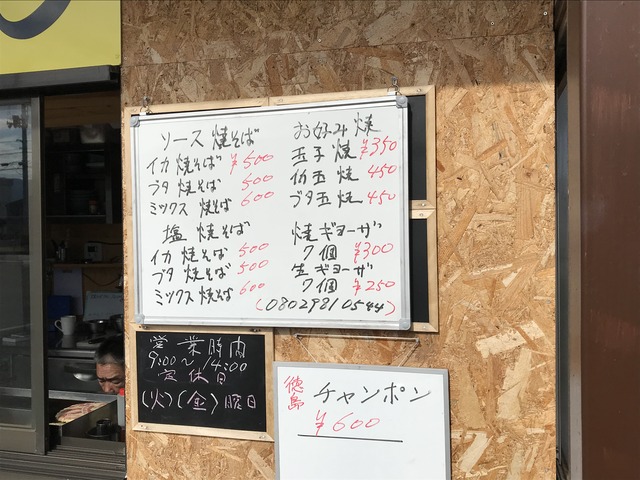 ソース 焼そば
イカ 焼そば ¥500
ブタ 焼そば 500
ミックス 焼そば 600
塩 焼そば
イカ 焼そば 500
ブタ 焼そば 500
ミックス 焼そば 600
お好み 焼
玉子 焼 ¥350
イカ玉 焼 450
ブタ玉 焼 450
焼ギョーザ
7個 ¥300
生ギョーザ
7個 ¥250
(08029810544)
営業時間
9:00〜14:00
定休日
(火)(金)曜日
徳島 チャンポン
¥600